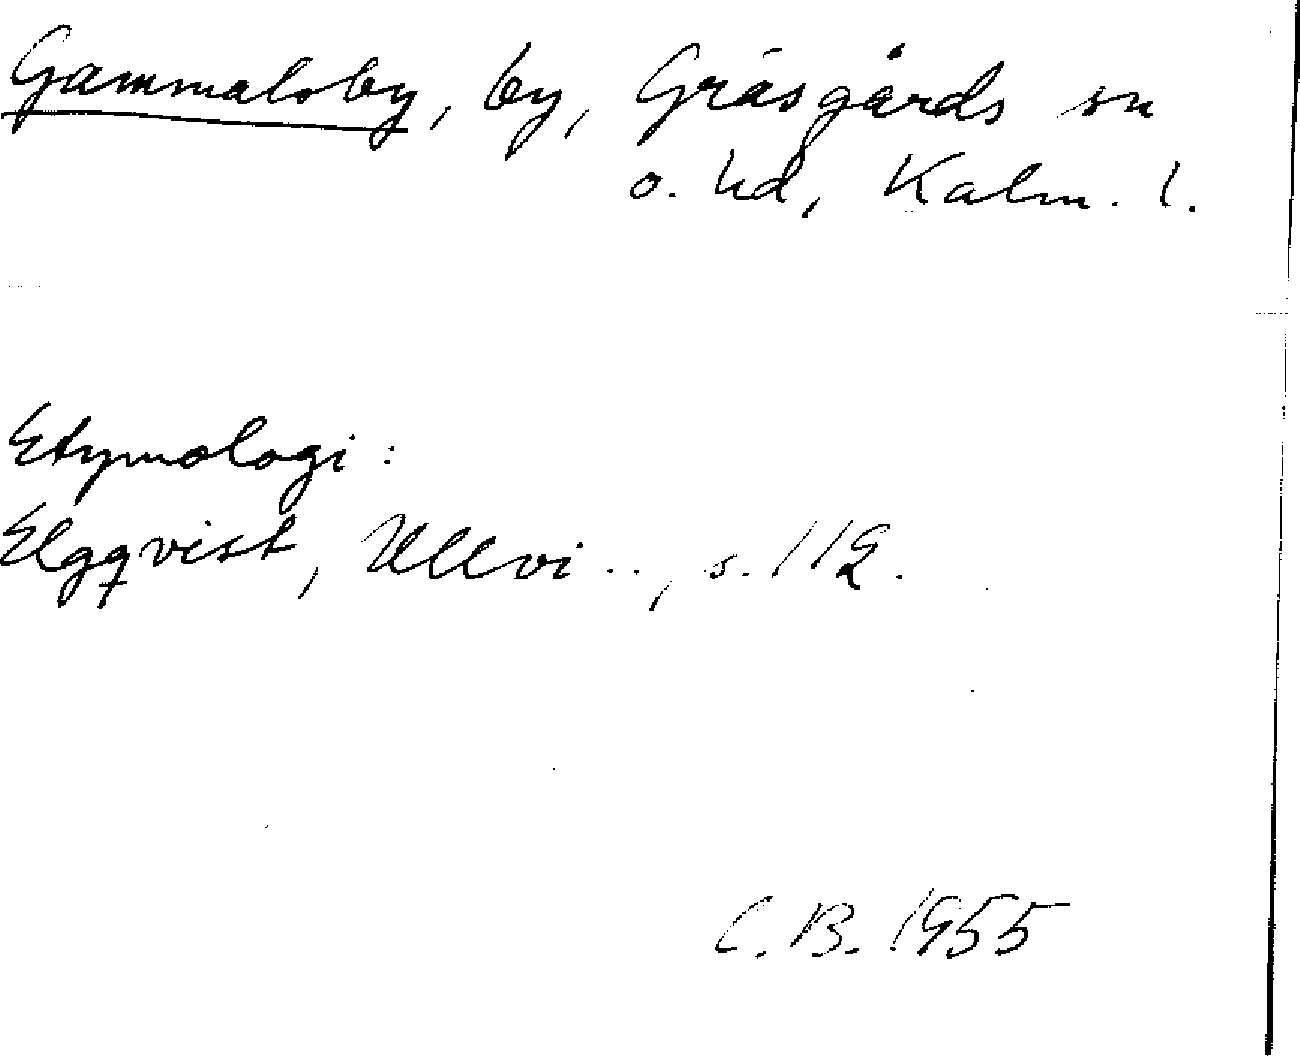 Gammalsby, by, Gräsgårds sn
o. hd, Kalm. l.
Etymologi:
Elgqvist, Ullvi .., s. 112.
C. B. 1955